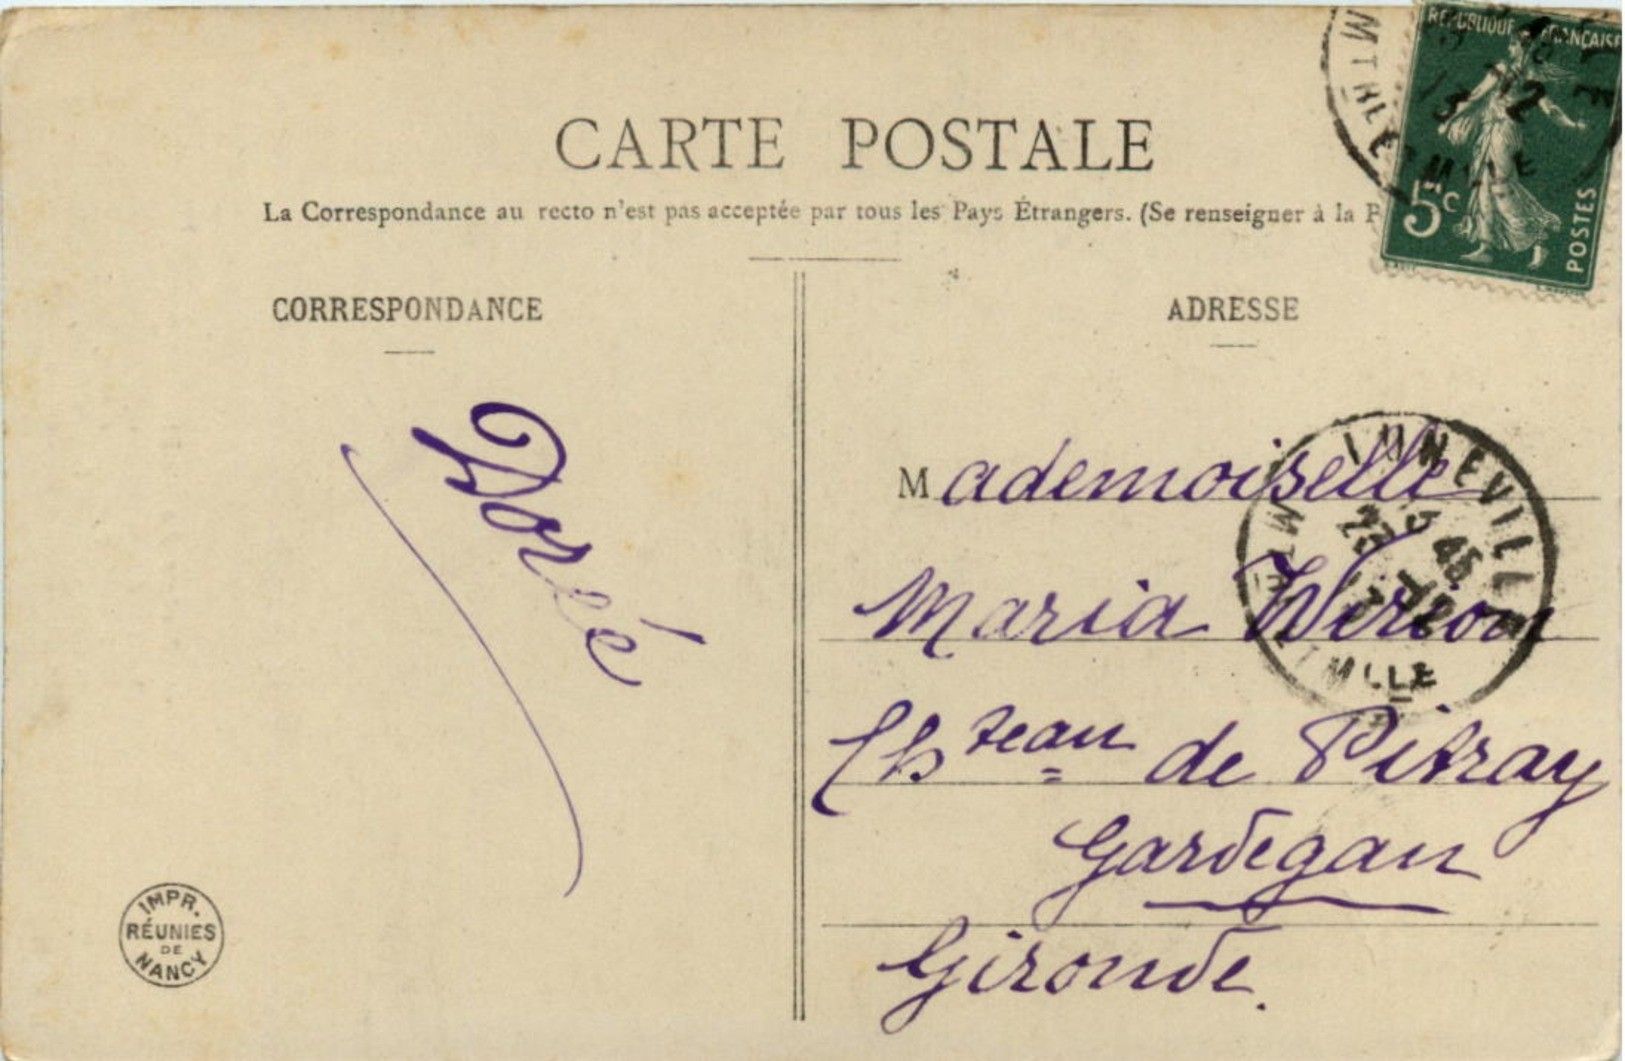 RÉPUBLIQUE FRANÇAISE
5c
POSTES
CARTE POSTALE
La Correspondance au recto n'est pas acceptée par tous les Pays Étrangers. (Se renseigner à la P
CORRESPONDANCE
Doré
IMPR.
RÉUNIES
DE
NANCY
ADRESSE
Mademoiselle
Maria Wirion
Chteau de Pitray
Gardegan
Gironde.
LUNEVILLE
MTHE ET MLLE